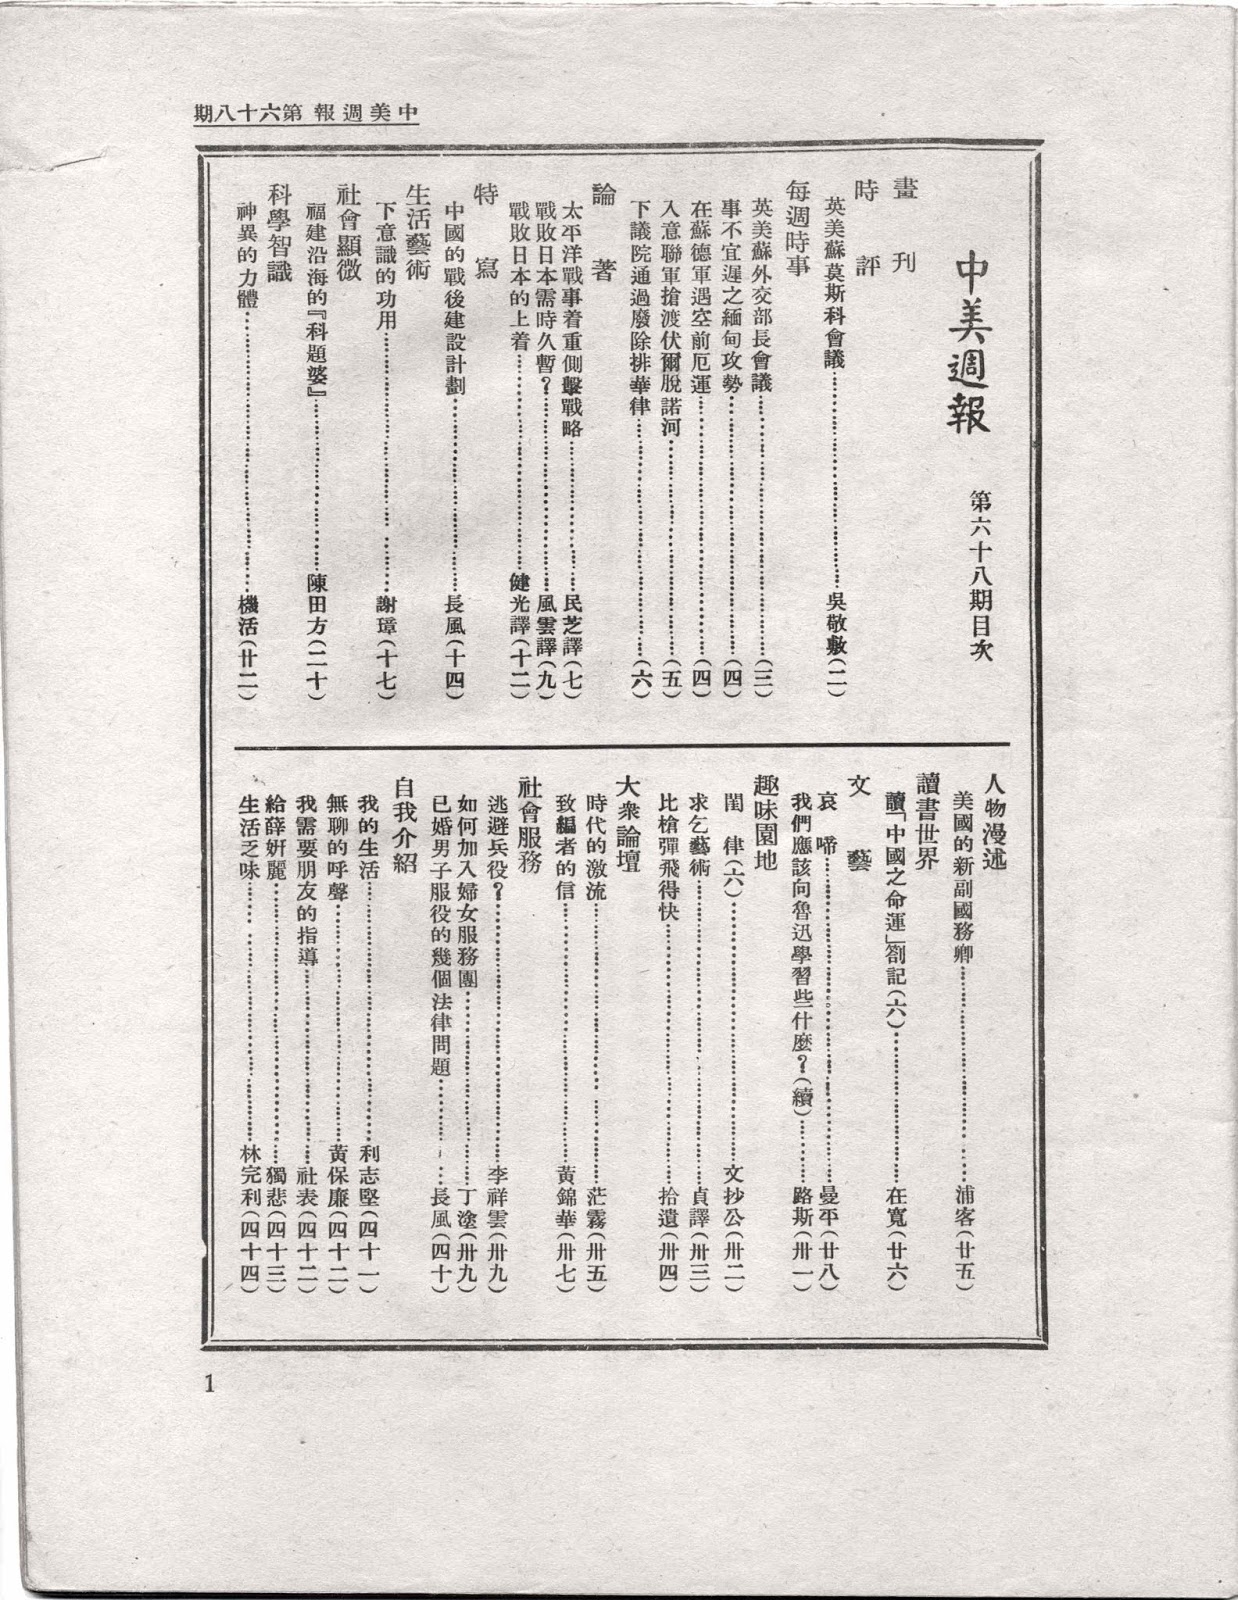 中美週報 第六十八期
中美週報 第六十八期目次
畫刊
時評
英美蘇莫斯科會議……吳敬敷(二)
每週時事
英美蘇外交部長會議……(三)
事不宜遲之緬甸攻勢……(四)
在蘇德軍遇空前厄運……(四)
入意聯軍搶渡伏爾脫諾河……(五)
下議院通過廢除排華律……(六)
論著
太平洋戰事着重側擊戰略……民芝譯(七)
戰敗日本需時久暫?……風雲譯(九)
戰敗日本的上着……健光譯(十二)
特寫
中國的戰後建設計劃……長風(十四)
生活藝術
下意識的功用……謝璋(十七)
社會顯微
福建沿海的『科題婆』……陳田方(二十)
科學智識
神異的力體……機活(廿二)
人物漫述
美國的新副國務卿……浦客(廿五)
讀書世界
讀「中國之命運」劄記(六)……在寬(廿六)
文藝
哀啼……曼平(廿八)
我們應該向魯迅學習些什麼?(續)……路斯(卅一)
趣味園地
閨律(六)……文抄公(卅二)
求乞藝術……貞譯(卅三)
比槍彈飛得快……拾遺(卅四)
大衆論壇
時代的激流……茫霧(卅五)
致編者的信……黃錦華(卅七)
社會服務
逃避兵役?……李祥雲(卅九)
如何加入婦女服務團……丁塗(卅九)
已婚男子服役的幾個法律問題……長風(四十)
自我介紹
我的生活……利志堅(四十一)
無聊的呼聲……黃保廉(四十二)
我需要朋友的指導……社表(四十二)
給薛妍麗……獨悲(四十三)
生活乏味……林完利(四十四)
1